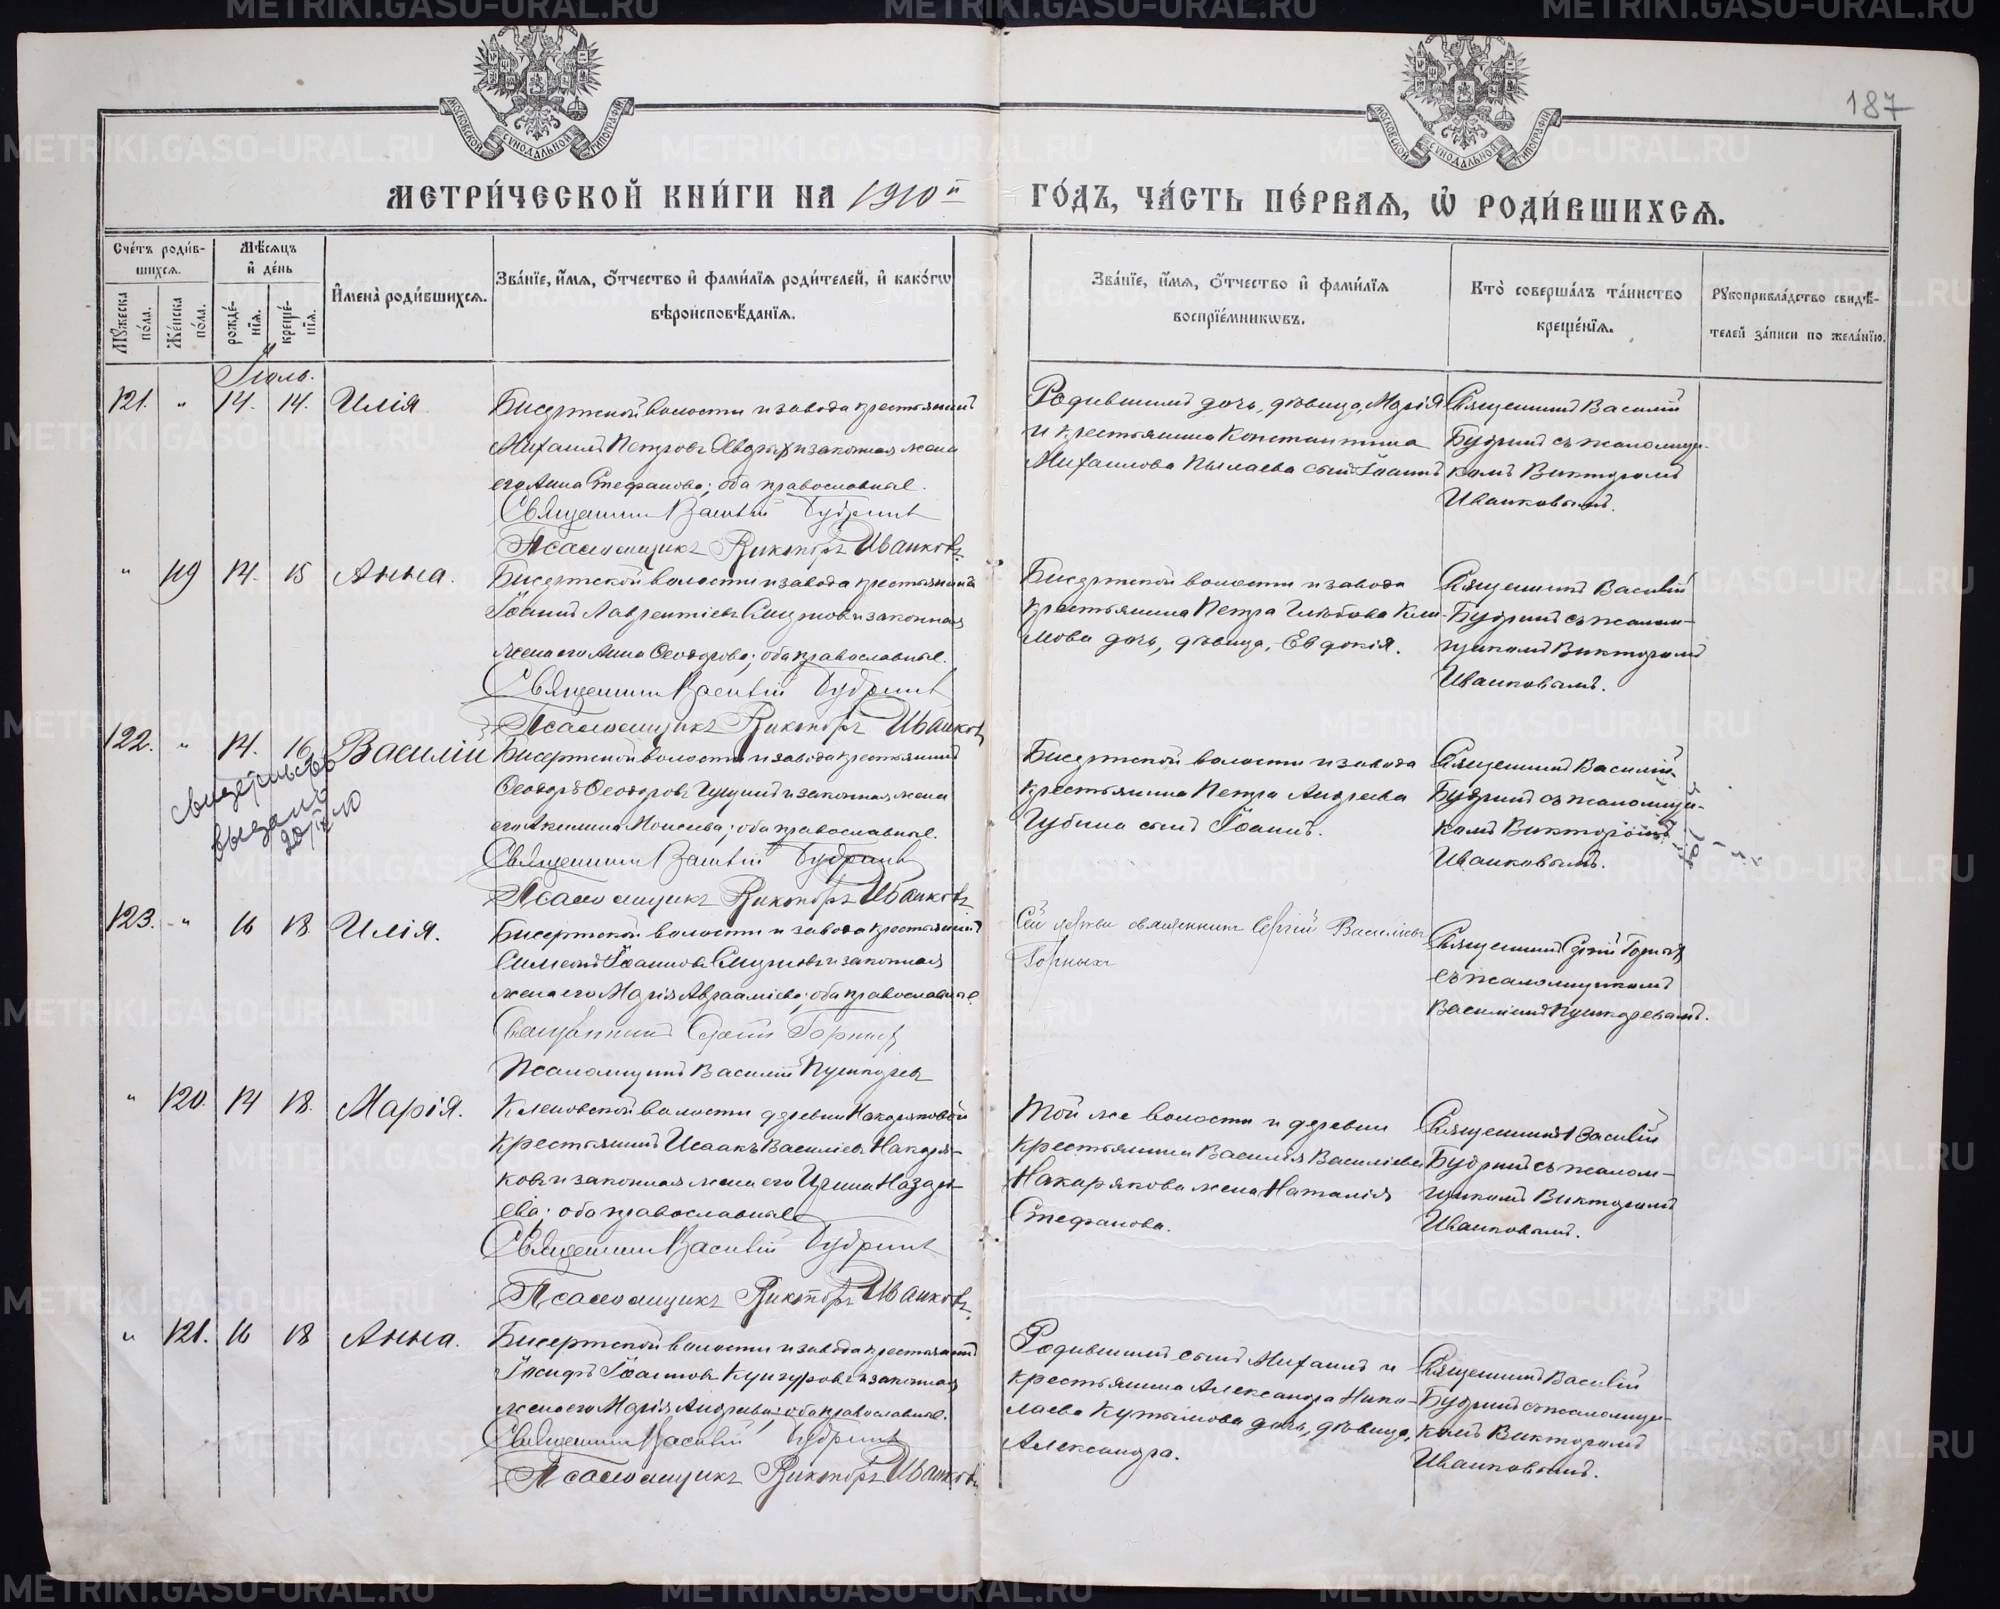 187
МОСКОВСКОЙ СУНОДАЛЬНОЙ ТИПОГРАФІИ
МОСКОВСКОЙ СУНОДАЛЬНОЙ ТИПОГРАФІИ
МЕТРИ́ЧЕСКОЙ КНИ́ГИ НА 1910й ГО́ДЪ, ЧА́СТЬ ПЕ́РВАѦ, Ѡ҆ РОДИ́ВШИХСѦ.
Сче́тъ роди́в-
шихсѧ.
Мѣ́сѧцъ
и҆ де́нь
И҆мена̀ роди́вшихсѧ.
Зва́нїе, и҆́мѧ, ѻ҆́тчество и҆ фами́лїѧ роди́телей, и҆ како́гѡ
вѣроисповѣ́данїѧ.
Мꙋ́жеска
по́ла.
Же́нска
по́ла.
рожде́-
нїѧ.
креще́-
нїѧ.
Зва́нїе, и҆́мѧ, ѻ҆́тчество и҆ фами́лїѧ
воспрїе́мникѡвъ.
Кто̀ соверша́лъ та́инство
креще́нїѧ.
Рꙋкоприкла́дство свидѣ́-
телей за́писи по жела́нїю.
Іюль.
121. " 14. 14. Илія
Бисертской волости и завода крестьянинъ
Михаилъ Петровъ и законная жена
его Анна Стефанова; оба православные.
Священникъ Василій Будринъ
Псаломщикъ Викторъ Иванковъ
Родившихъ дочь, дѣвица, Марія
и крестьянина Константина
Михаилова Пылаева сынъ Іоаннъ
Священникъ Василій
Будринъ съ псаломщи-
комъ Викторомъ
Иванковымъ.
" 119 14. 15 Анна.
Бисертской волости и завода крестьянинъ
Іоаннъ Лаврентіевъ Смирновъ и законная
жена его Анна Ѳеодорова; оба православные.
Священникъ Василій Будринъ
Псаломщикъ Викторъ Иванковъ
Бисертской волости и завода
крестьянина Петра Глѣбова Кли-
мова дочь, дѣвица, Евдокія.
Священникъ Василій
Будринъ съ псалом-
щикомъ Викторомъ
Иванковымъ.
122. " 14. 16 Василій
свидетельство
выдано
Бисертской волости и завода крестьянинъ
Ѳеодоръ Ѳеодоровъ и законная жена
его Акилина Моисеева; оба православные.
Священникъ Василій Будринъ
Псаломщикъ Викторъ Иванковъ
Бисертской волости и завода
крестьянина Петра Андреева
Губина сынъ Іоаннъ.
Священникъ Василій
Будринъ съ псаломщи-
комъ Викторомъ
Иванковымъ.
123. " 16 18 Илія.
Бисертской волости и завода крестьянинъ
Симеонъ Іоанновъ Смирновъ и законная
жена его Марія Авраамиева; оба православные.
Священникъ Сергій Горныхъ
Псаломщикъ Василій Пушкаревъ
Сей церкви священникъ Сергій Василіевъ
Горныхъ
Священникъ Сергій Горныхъ
съ псаломщикомъ
Василіемъ Пушкаревымъ.
" 120. 14 18. Марія.
Кленовской волости деревни Накаряковой
крестьянинъ Исаакъ Василіевъ Накаря-
ковъ и законная жена его Ирина Назарі-
ева; оба православные
Священникъ Василій Будринъ
Псаломщикъ Викторъ Иванковъ
Той же волости и деревни
крестьянина Василія Василіева
Накарякова жена Наталія
Стефанова.
Священникъ Василій
Будринъ съ псалом-
щикомъ Викторомъ
Иванковымъ.
" 121. 16 18 Анна.
Бисертской волости и завода крестьянинъ
Іосифъ Іоанновъ Кунгуровъ и законная
жена его Марія Андреева; оба православные.
Священникъ Василій Будринъ
Псаломщикъ Викторъ Иванковъ
Родившихъ сынъ Михаилъ и
крестьянина Александра Нико-
лаева Кутымова дочь, дѣвица,
Александра.
Священникъ Василій
Будринъ съ псаломщи-
комъ Викторомъ
Иванковымъ.
METRIKI.GASO-URAL.RU